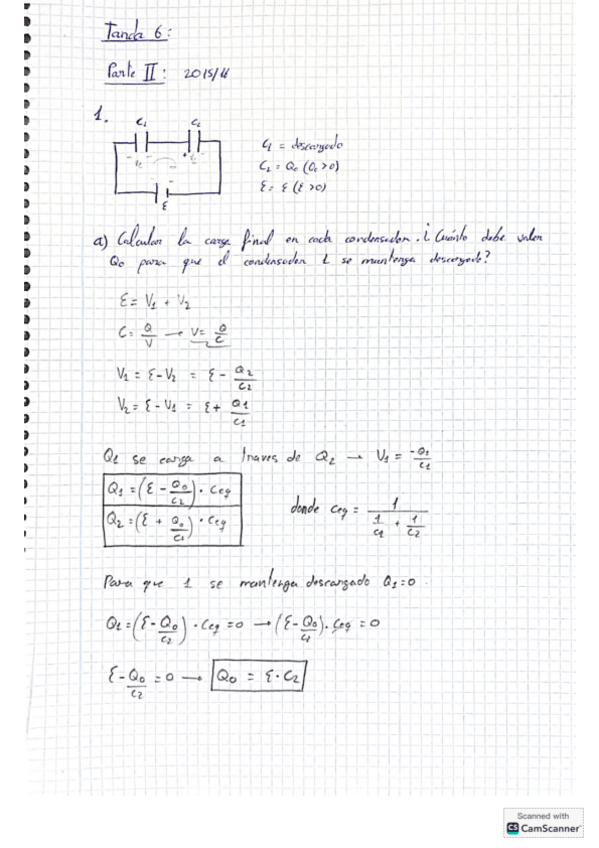 Tanda 6:
Parte II: 2015/16
1.
C₁ C₂
ε
C₁ = descargado
C₂ = Q₀ (Q₀ >0)
ε = ε (ε >0)
a) Calcular la carga final en cada condensador. ¿Cuánto debe valer
Q₀ para que el condensador 1 se mantenga descargado?
ε = V₁ + V₂
C = Q/V → V = Q/C
V₁ = ε - V₂ = ε - Q₂/C₂
V₂ = ε - V₁ = ε + Q₁/C₁
Q₁ se carga a traves de Q₂ → V₁ = -Q₁/C₁
Q₁ = (ε - Q₀/C₂) · Ceq
Q₂ = (ε + Q₀/C₁) · Ceq
donde Ceq = 1/(1/C₁ + 1/C₂)
Para que 1 se mantenga descargado Q₁ = 0
Q₁ = (ε - Q₀/C₂) · Ceq = 0 → (ε - Q₀/C₂) · Ceq = 0
ε - Q₀/C₂ = 0 → Q₀ = ε · C₂
Scanned with
CS CamScanner